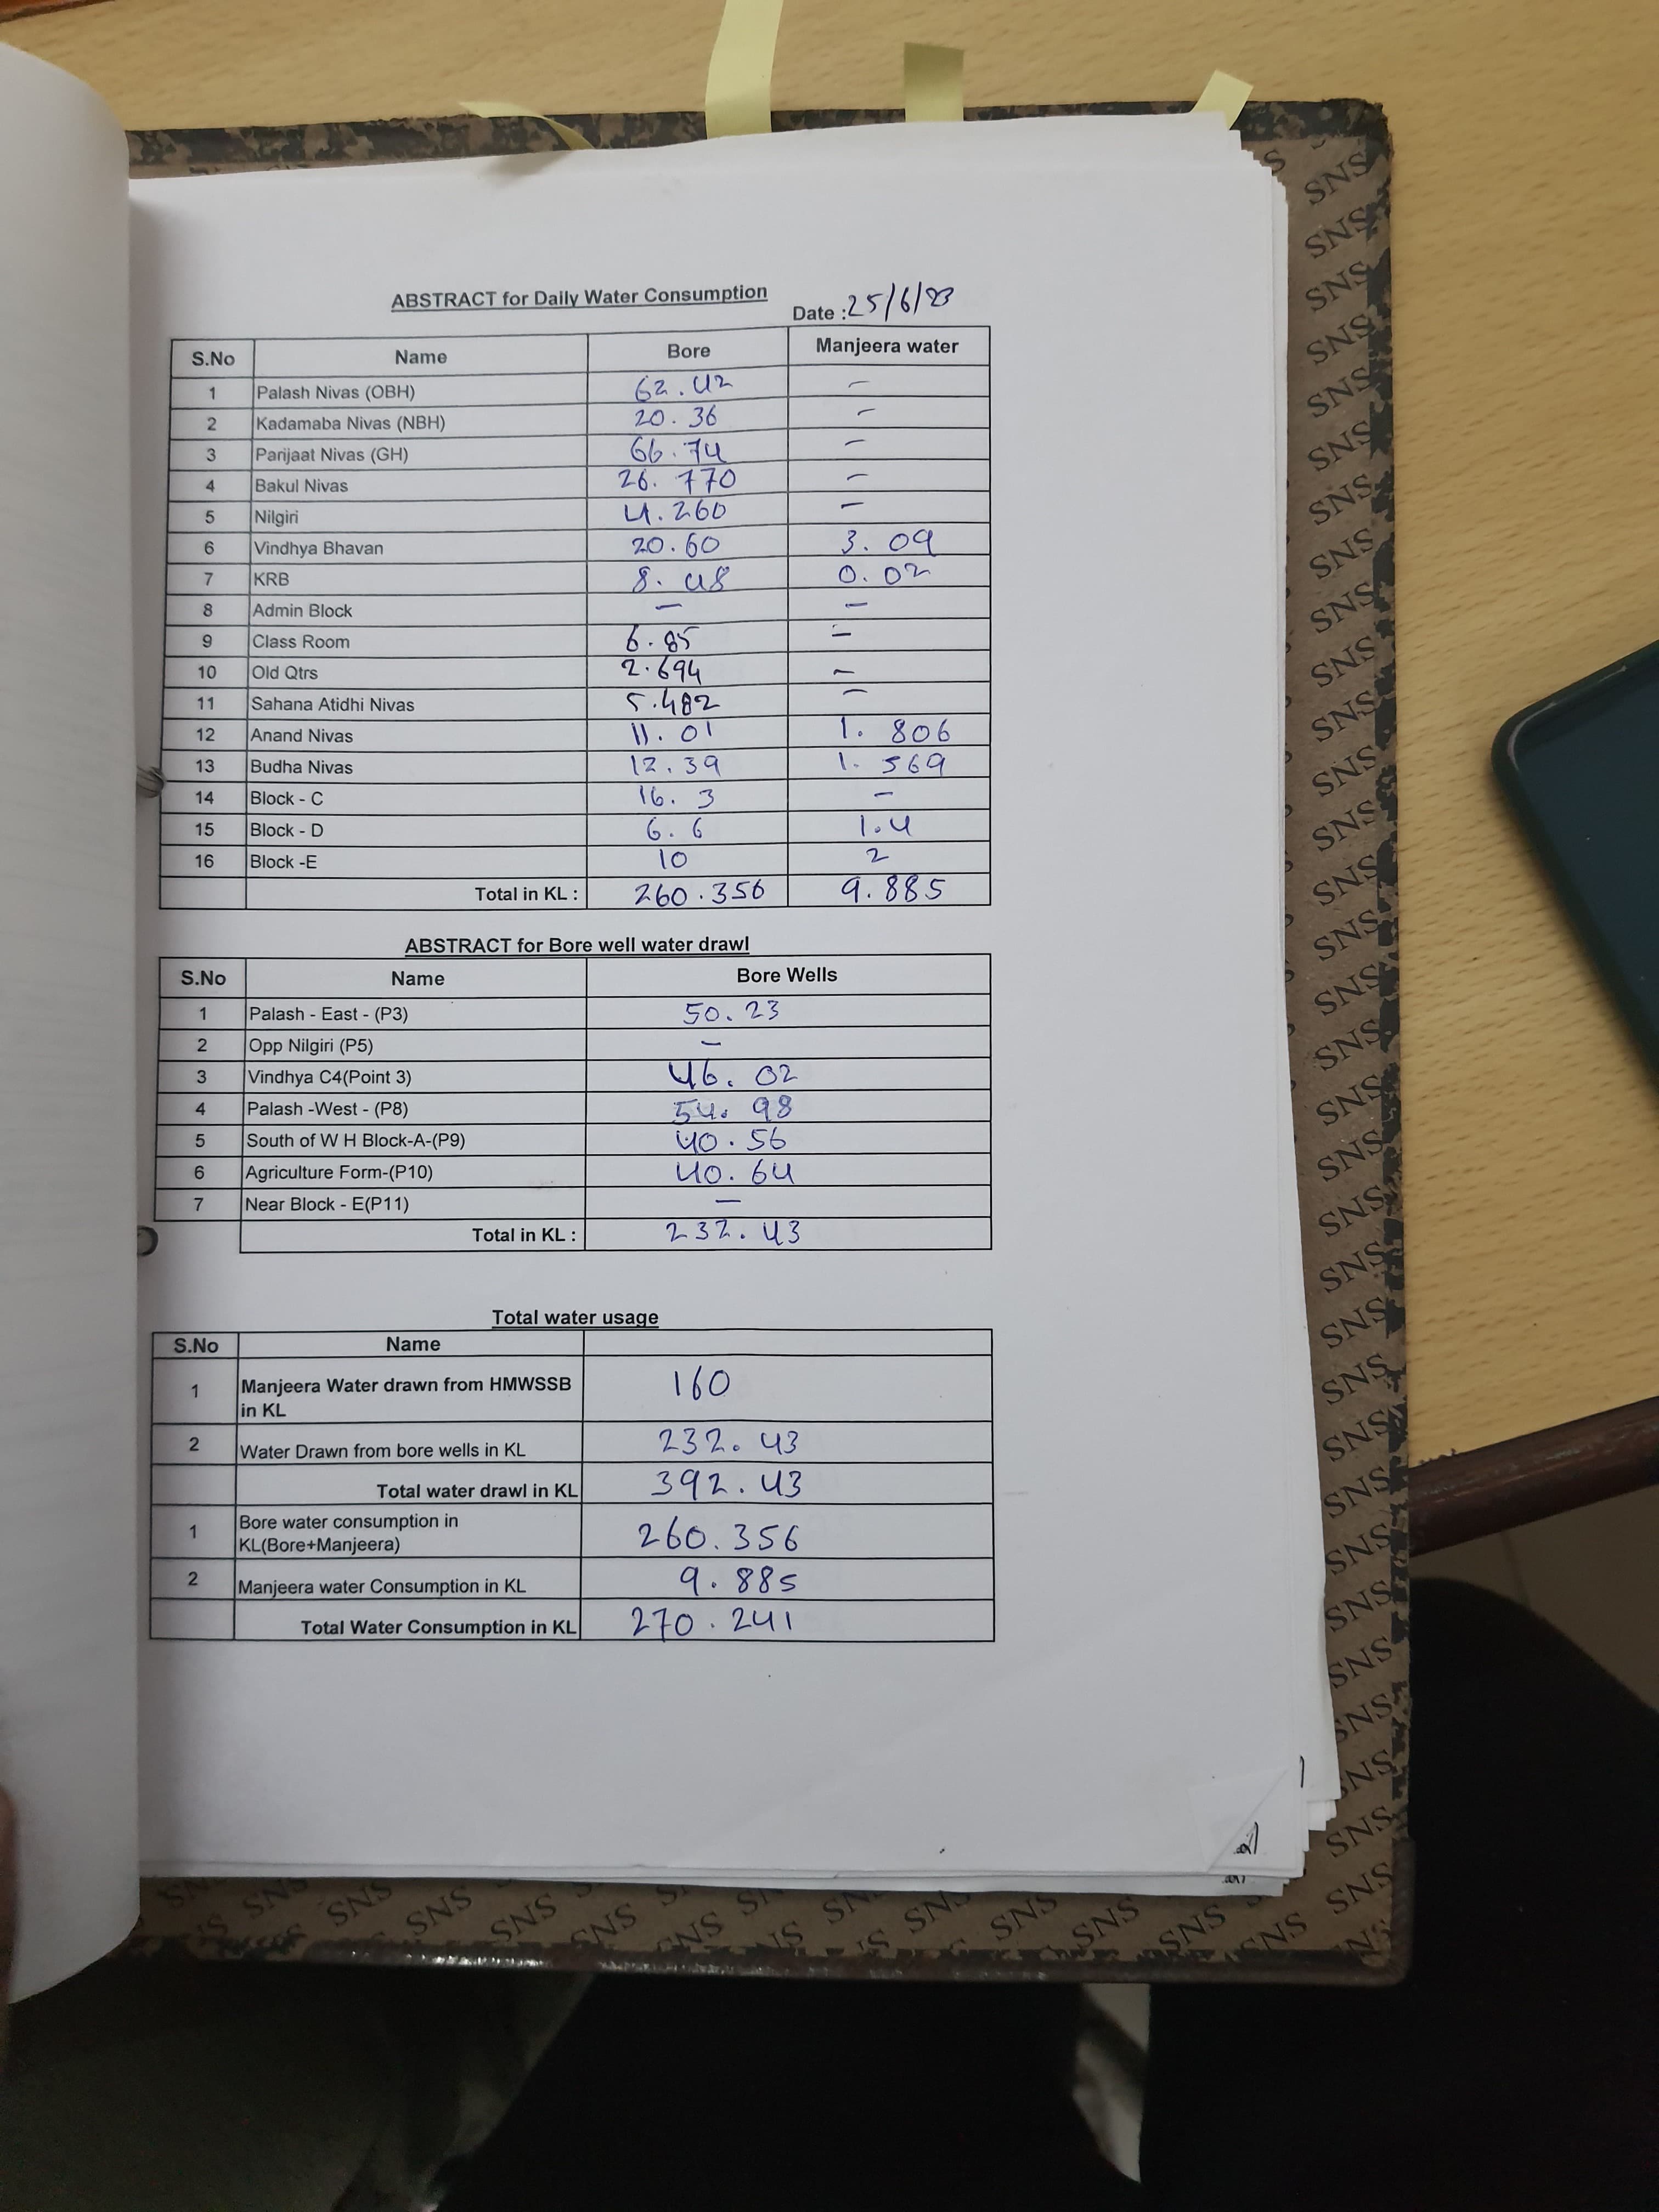 ABSTRACT for Daily Water Consumption
Date : 25/6/23
S.No Name Bore Manjeera water
1 Palash Nivas (OBH) 62.42 -
2 Kadamaba Nivas (NBH) 20.36 -
3 Parijaat Nivas (GH) 66.74 -
4 Bakul Nivas 26.770 -
5 Nilgiri 4.260 -
6 Vindhya Bhavan 20.60 3.09
7 KRB 8.48 0.02
8 Admin Block - -
9 Class Room 6.85 -
10 Old Qtrs 2.694 -
11 Sahana Atidhi Nivas 5.482 -
12 Anand Nivas 11.01 1.806
13 Budha Nivas 12.39 1.569
14 Block - C 16.3 -
15 Block - D 6.6 1.4
16 Block -E 10 2
Total in KL : 260.356 9.885
ABSTRACT for Bore well water drawl
S.No Name Bore Wells
1 Palash - East - (P3) 50.23
2 Opp Nilgiri (P5) -
3 Vindhya C4(Point 3) 46.02
4 Palash -West - (P8) 54.98
5 South of W H Block-A-(P9) 40.56
6 Agriculture Form-(P10) 40.64
7 Near Block - E(P11) -
Total in KL : 232.43
Total water usage
S.No Name
1 Manjeera Water drawn from HMWSSB 160
in KL
2 Water Drawn from bore wells in KL 232.43
Total water drawl in KL 392.43
1 Bore water consumption in 260.356
KL(Bore+Manjeera)
2 Manjeera water Consumption in KL 9.885
Total Water Consumption in KL 270.241
SNS